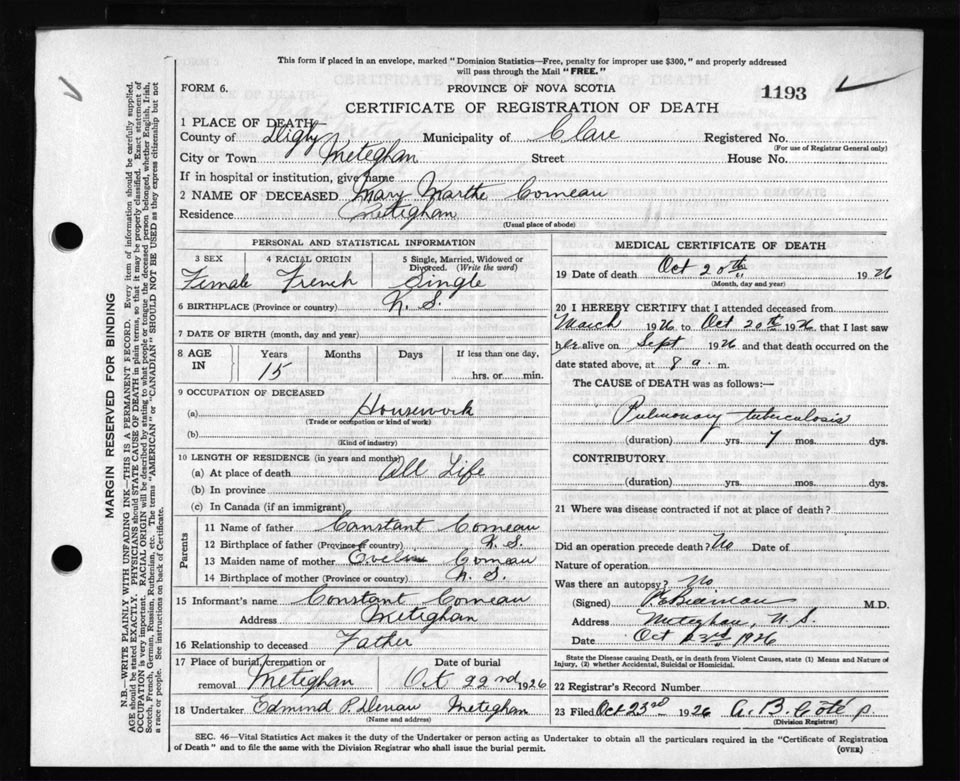 This form if placed in an envelope, marked "Dominion Statistics—Free, penalty for improper use $300," and properly addressed
will pass through the Mail "FREE."
FORM 6.
PROVINCE OF NOVA SCOTIA
1193
CERTIFICATE OF REGISTRATION OF DEATH
1 PLACE OF DEATH
County of Digby Municipality of Clare Registered No.
(For use of Registrar General only)
City or Town Meteghan Street House No.
If in hospital or institution, give name
2 NAME OF DECEASED Mary Marthe Comeau
Residence Meteghan
(Usual place of abode)
PERSONAL AND STATISTICAL INFORMATION
3 SEX 4 RACIAL ORIGIN 5 Single, Married, Widowed or
Divorced. (Write the word)
Female French Single
6 BIRTHPLACE (Province or country) N. S.
7 DATE OF BIRTH (month, day and year)
8 AGE IN Years Months Days If less than one day,
15 hrs. or min.
9 OCCUPATION OF DECEASED
(a) Housework
(Trade or occupation or kind of work)
(b)
(Kind of industry)
10 LENGTH OF RESIDENCE (in years and months)
(a) At place of death All Life
(b) In province
(c) In Canada (if an immigrant)
Parents
11 Name of father Constant Comeau
12 Birthplace of father (Province or country) N. S.
13 Maiden name of mother Comeau
14 Birthplace of mother (Province or country) N. S.
15 Informant's name Constant Comeau
Address Meteghan
16 Relationship to deceased Father
17 Place of burial, cremation or Date of burial
removal Meteghan Oct 22nd 1926
18 Undertaker Edmund P. Meteghan
(Name and address)
MEDICAL CERTIFICATE OF DEATH
19 Date of death Oct 20th 1926
(Month, day and year)
20 I HEREBY CERTIFY that I attended deceased from
March 1926 to Oct 20th 1926, that I last saw
her alive on Sept 1926 and that death occurred on the
date stated above, at 8 a. m.
The CAUSE of DEATH was as follows:—
Pulmonary tuberculosis
(duration) yrs. 7 mos. dys.
CONTRIBUTORY
(duration) yrs. mos. dys.
21 Where was disease contracted if not at place of death?
Did an operation precede death? No Date of
Nature of operation
Was there an autopsy? No
(Signed) M.D.
Address Meteghan, N. S.
Date Oct 23rd 1926
State the Disease causing Death, or in death from Violent Causes, state (1) Means and Nature of
Injury, (2) whether Accidental, Suicidal or Homicidal.
22 Registrar's Record Number
23 Filed Oct 23rd 1926 A. B. Côté p.
(Division Registrar)
SEC. 46—Vital Statistics Act makes it the duty of the Undertaker or person acting as Undertaker to obtain all the particulars required in the "Certificate of Registration
of Death" and to file the same with the Division Registrar who shall issue the burial permit.
(OVER)
MARGIN RESERVED FOR BINDING
N.B.—WRITE PLAINLY WITH UNFADING INK—THIS IS A PERMANENT RECORD. Every item of information should be carefully supplied.
AGE should be stated EXACTLY. PHYSICIANS should STATE CAUSE OF DEATH in plain terms, so that it may be properly classified. Exact statement of
OCCUPATION is very important. RACIAL ORIGIN will be described by stating to what people or tongue the deceased person belonged, whether English, Irish,
Scotch, French, German, Russian, Ruthenian, etc. The terms "AMERICAN" or "CANADIAN" SHOULD NOT BE USED as they express citizenship but not
a race or people. See instructions on back of Certificate.